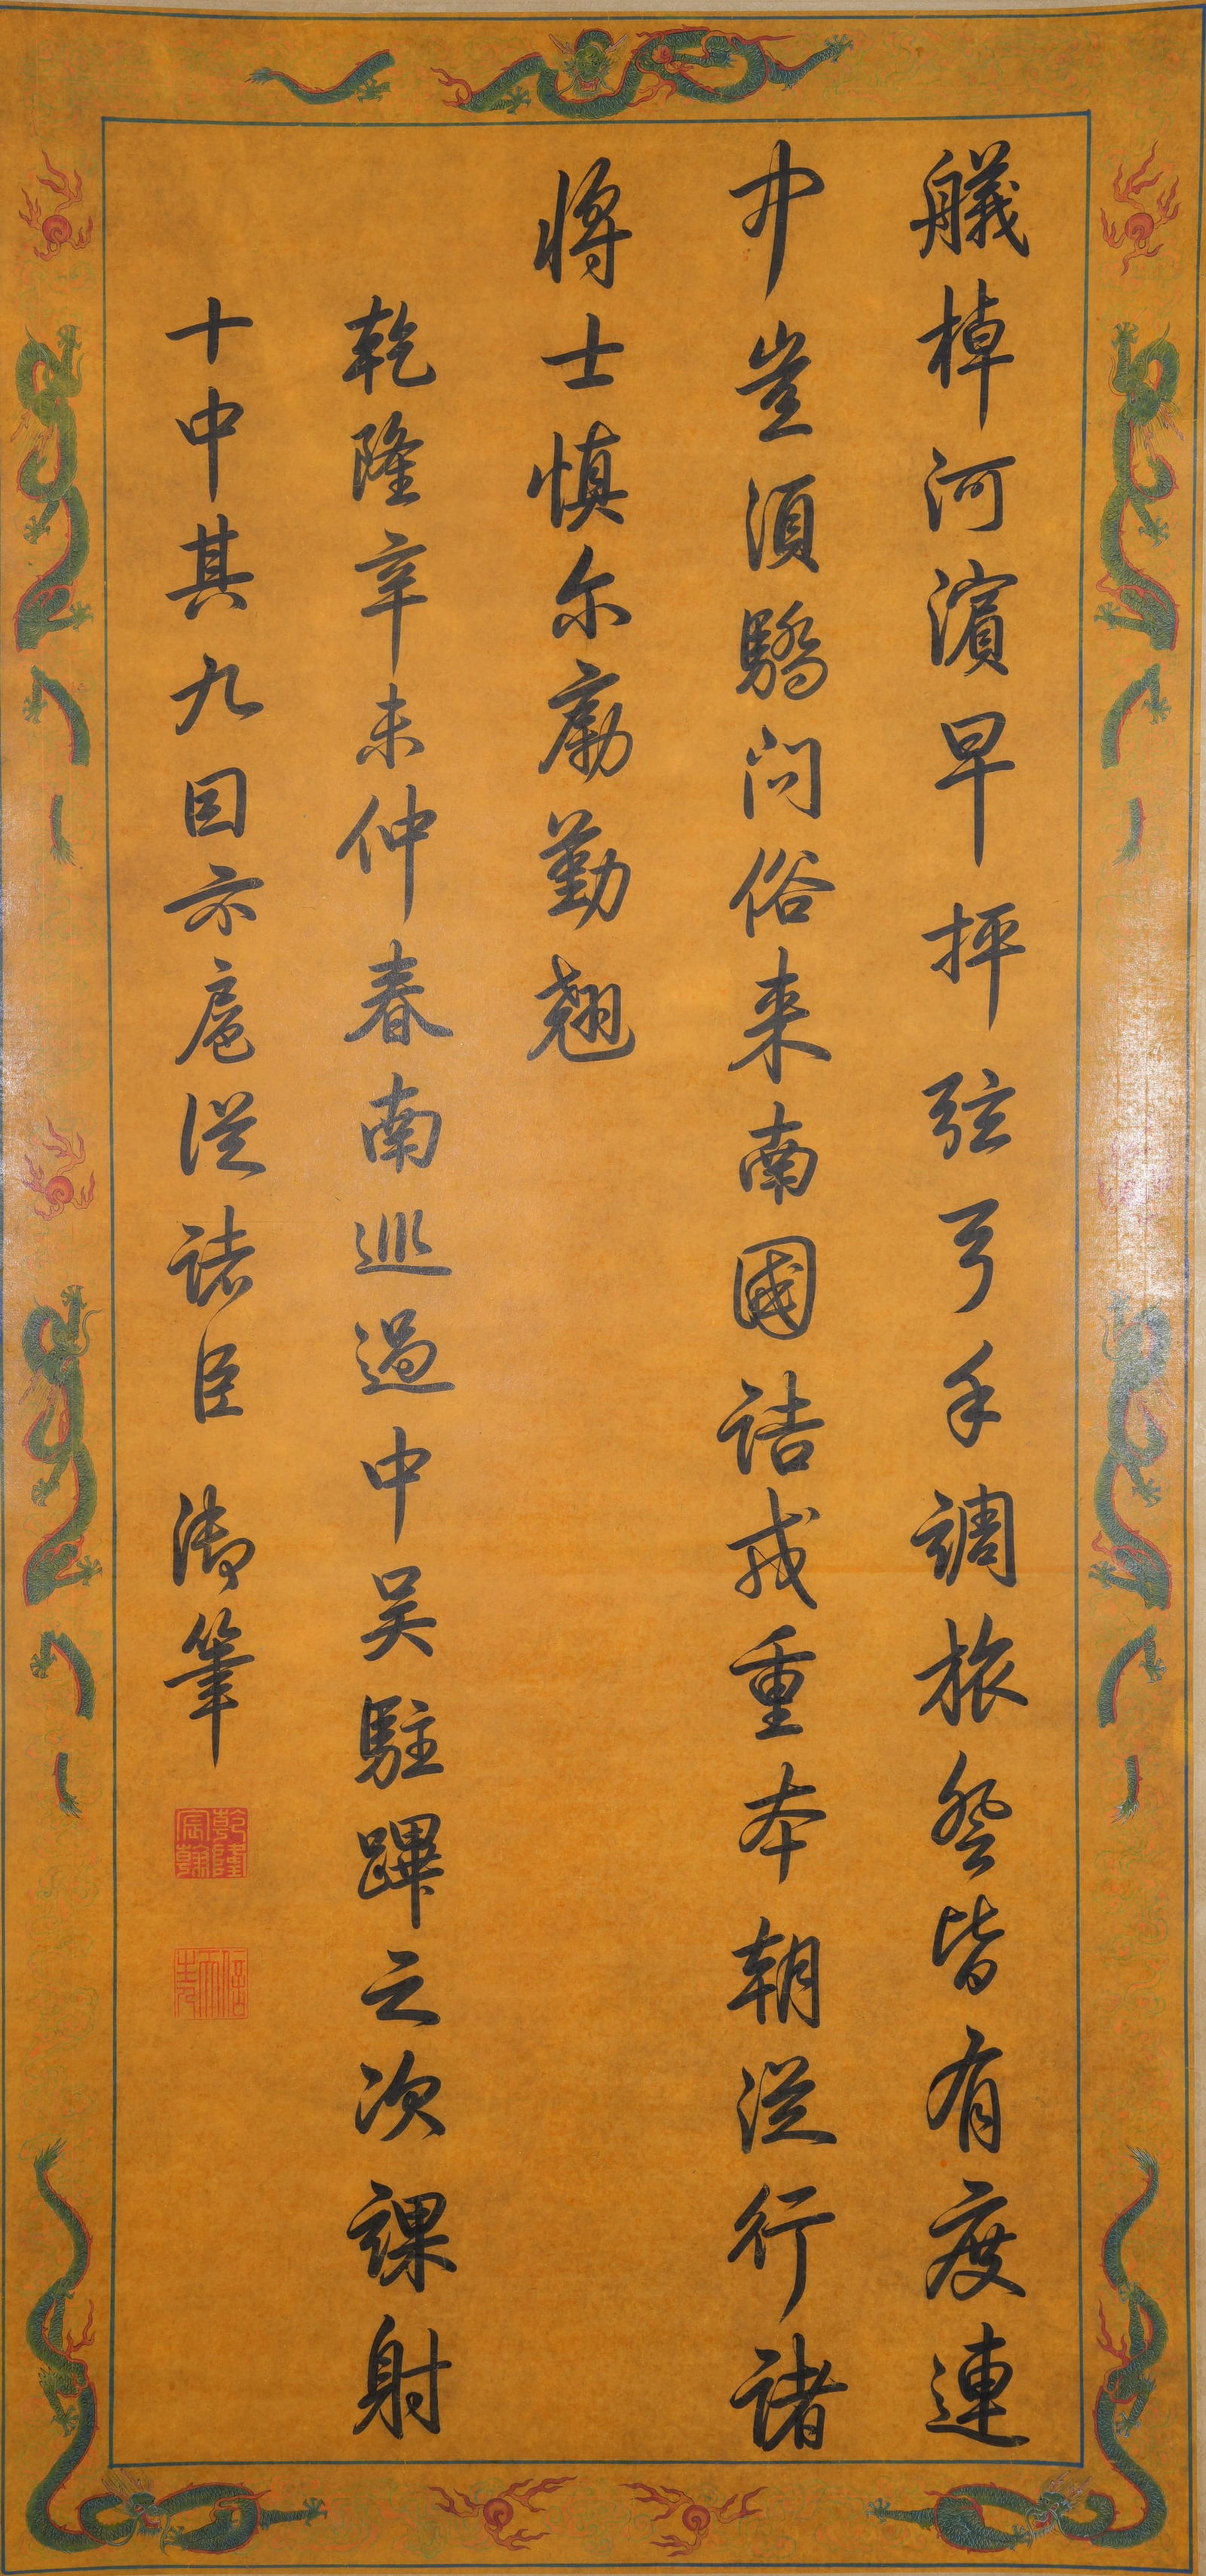 艤棹河濱早抨弦弓手調旅發皆有度連
中豈須驕問俗来南國詰戎重本朝從行諸
將士慎尔勵勤翹
乾隆辛未仲春南巡過中吴駐蹕之次課射
十中其九因示扈從諸臣 御筆
乾隆宸翰